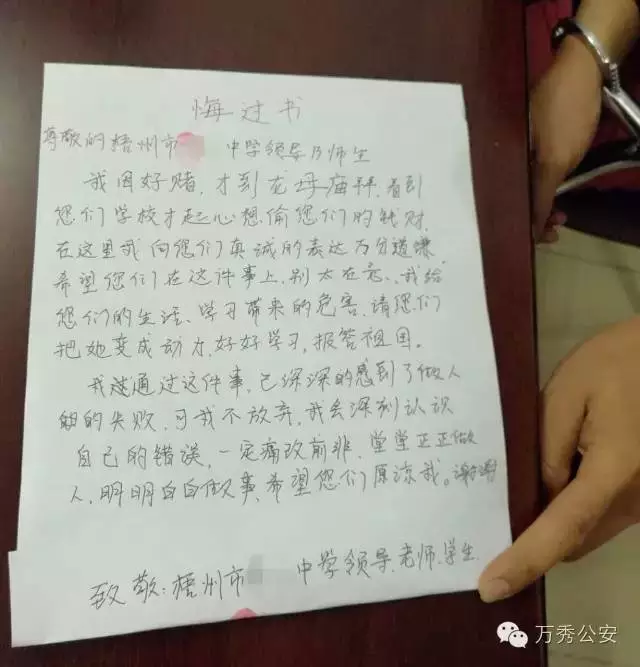 悔过书
尊敬的梧州市 中学领导乃师生
我因好赌,才到龙母庙拜,看到
您们学校才起心想偷您们的钱财.
在这里我向您们真诚的表达万分道嫌,
希望您们在这件事上,别太在意、我给
您们的生活、学习带来的危害.请您们
把她变成动力,好好学习,报答祖国。
我通过这件事,已深深的感到了做人
的失败,可我不放弃,我会深刻认识
自己的错误,一定痛改前非,堂堂正正做
人,明明白白做事,希望您们原凉我。谢谢
致敬:梧州市 中学领导.老师.学生.
万秀公安